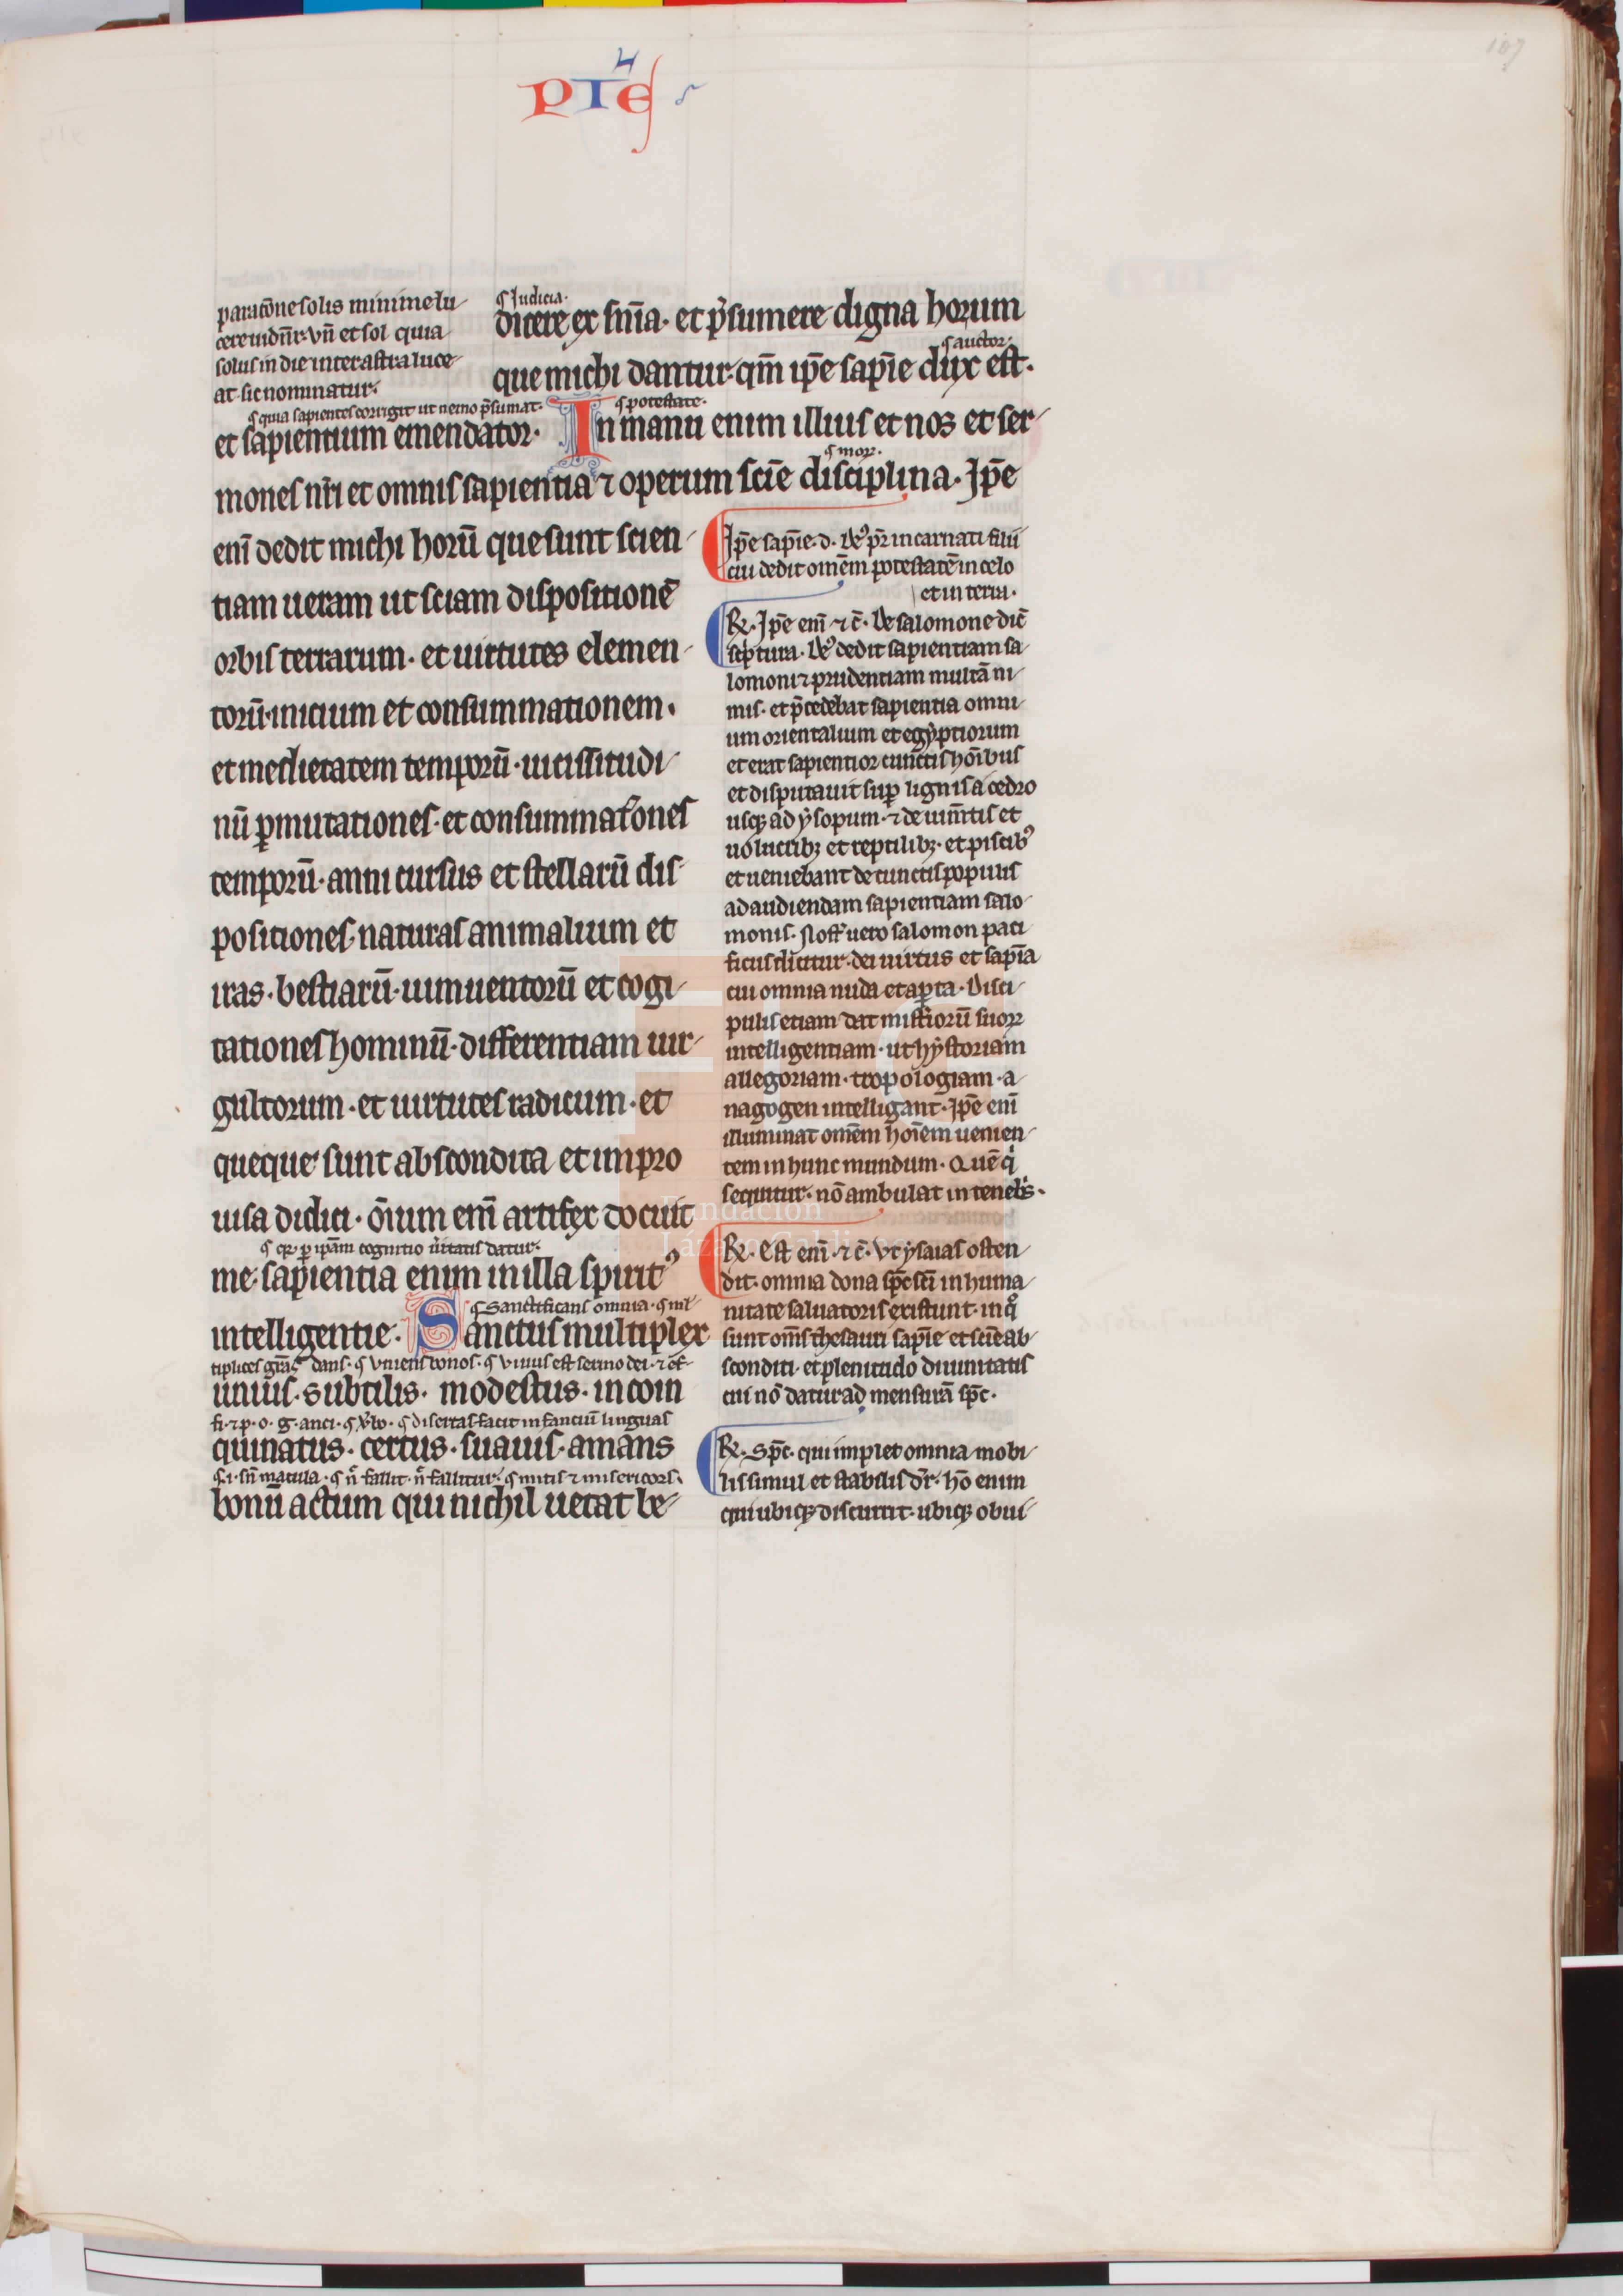 PIĒ
107
paratōne solis minime lu
cere uidn̄r. vn̄ et sol quia
solus in die inter astra luce
at sic nominatur.
Judicia.
dicere ex sn̄ia. et p̄sumere digna horum
auctor.
que michi dantur. qm̄ ip̄e sapīe dux est.
quia sapientes corrigit ut nemo p̄sumat.
potestate.
et sapientium emendator. In manu enim illius et nos et ser
moꝝ.
mones nr̄i et omnis sapientia ⁊ operum scīe disciplina. Jpē
enī dedit michi horū que sunt scien
tiam ueram ut sciam dispositionē
orbis terrarum. et uirtutes elemen
torū. inicium et consummationem.
et medietatem temporū. uicissitudi
nū ꝑmutationes. et consummatōnes
temporū. anni cursus et stellarū dis
positiones. naturas animalium et
iras. bestiarū. uim uentorū et cogi
tationes hominū. differentiam uir
gultorum. et uirtutes radicum. et
queque sunt abscondita et impro
uisa didici. ōium enī artifex docuit
qꝛ ꝑ ipām cognitio u̅itatis datur.
me sapientia enim in illa spiritꝰ
Sanctificans omnia. mł
intelligentie. Sanctus multiplex
tiplices gr̄as dans. vniens bonos. viuus est sermo dei. ⁊ ef
unius. subtilis. modestus. incoin
fi. ⁊ p. o. g. anci. disertas facit infanciū linguas
quinatus. certus. suauis. amans
.i. sn̄ macula. n̄ fallit. n̄ fallitur. mitis ⁊ misericors.
bonū actum qui nichil uetat be
Jpē sapīe. d. deꝰ pr̄ incarnati filii
cui dedit omēm potestatē in celo
et in terra.
R. Jpē enī ⁊ c̄. De salomone dic̄
scptura. deꝰ dedit sapientiam sa
lomoni ⁊ prudentiam multā ni
mis. et p̄cedebat sapientia omni
um orientalium et egyptiorum
et erat sapientior cunctis hoībus
et disputauit suꝑ lignis a cedro
usqꝫ ad ysopum. ⁊ de iumn̄tis et
uolucribꝫ et reptilibꝫ. et piscibꝰ
et ueniebant de cunctis populis
ad audiendam sapientiam salo
monis. Nost̄ uero salomon paci
ficus dicitur. dei uirtus et sapīa
cui omnia nuda et aꝑta. Disci
pulis etiam dat mistiorū suoꝝ
intelligentiam. ut hystoriam
allegoriam. tropologiam. a
nagogen intelligant. Jpē enī
illuminat omēm hoīem uenien
tem in hunc mundum. Quē q̇
sequitur. nō ambulat in tenebs̄.
R. Est enī. ⁊ c̄. Vt ysaias osten
dit. omnia dona spc̄ sc̄i in huma
nitate saluatoris existunt. in qͦ
sunt omēs thesauri sapīe et scīe ab
sconditi. et plenitudo diuinitatis
cui nō datur ad mensurā spc̄.
R. Spc̄. qui implet omnia mobi
lis simul et stabilis dr̄. hō enim
qui ubiqꝫ discurrit. ubiqꝫ obui
Fundación
Lázaro Galdiano